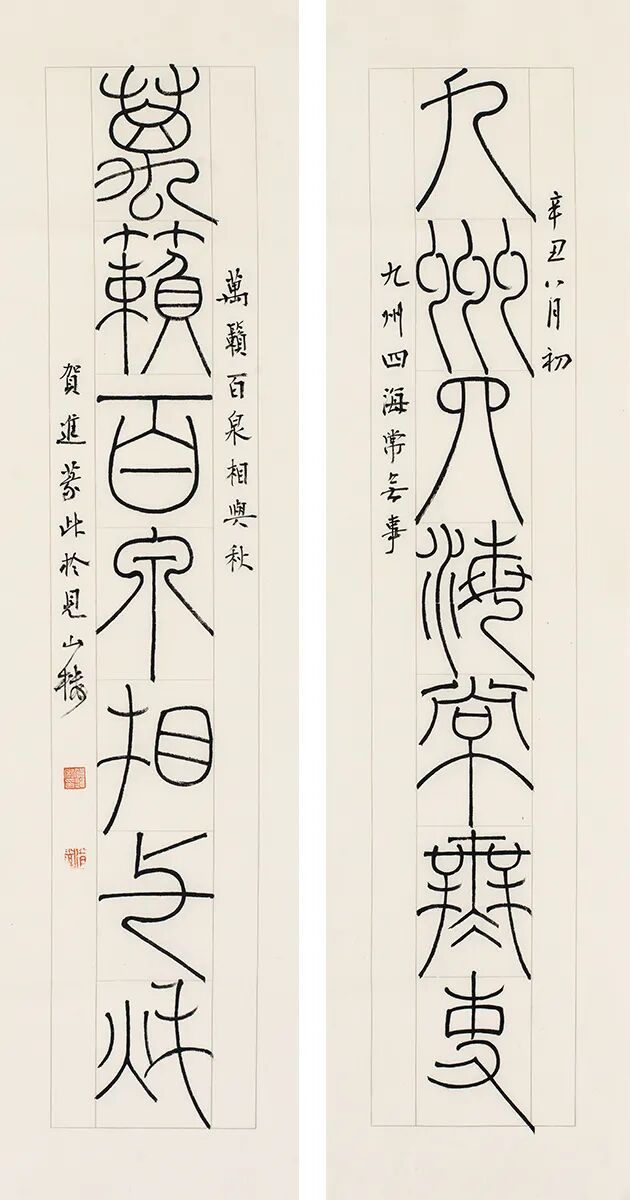 辛丑八月初
九州四海常無事
九州四海常無事
萬籟百泉相與秋
萬籟百泉相与秋
賀進篆此於見山樓